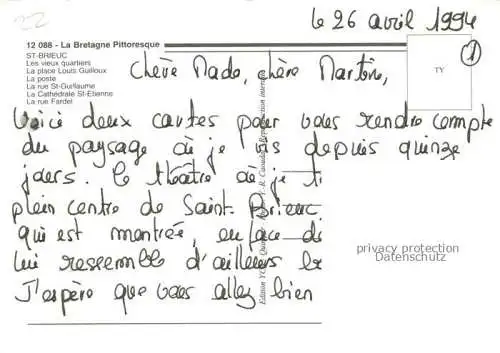 22
le 26 avril 1994
12 088 - La Bretagne Pittoresque
ST-BRIEUC
Les vieux quartiers
La place Louis Guilloux
La poste
La rue St-Guillaume
La Cathédrale St-Etienne
La rue Fardel
TY
1
Chère Mado, chère Martine,
Voici deux cartes pour vous rendre compte
du paysage où je vis depuis quinze
jours. Le théâtre où je t
plein centre de Saint-Brieuc.
qui est montrée, en face di
lui ressemble d'ailleurs be
J'espère que vous allez bien
privacy protection
Datenschutz